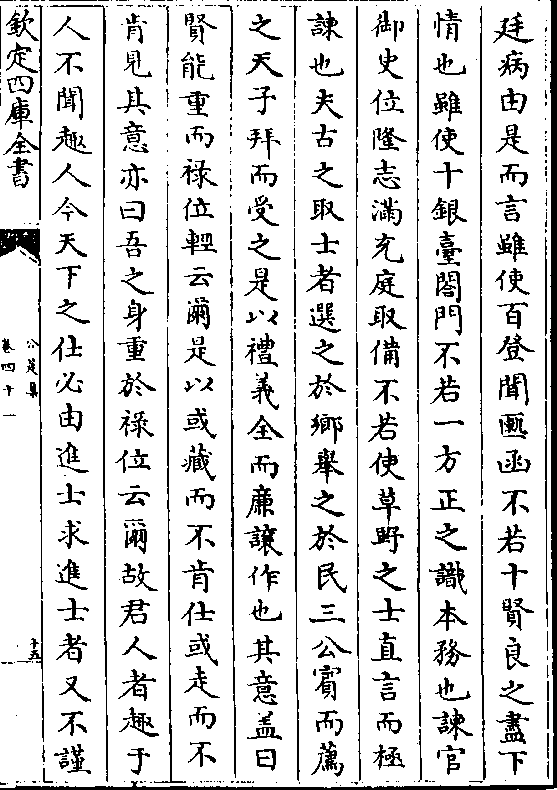 廷病由是而言雖使百登聞匭函不若十賢良之盡下
情也雖使十銀臺閤門不若一方正之識本務也諫官
御史位隆志滿充庭取備不若使草野之士直言而極
諫也夫古之取士者選之於鄉舉之於民三公賓而薦
之天子拜而受之是以禮義全而廉讓作也其意盖曰
賢能重而祿位輕云爾是以或藏而不肯仕或走而不
肯見其意亦曰吾之身重於祿位云爾故君人者趣于
人不聞趣人今天下之仕必由進士求進士者又不謹
欽定四庫全書
公是集
卷四十一
十五